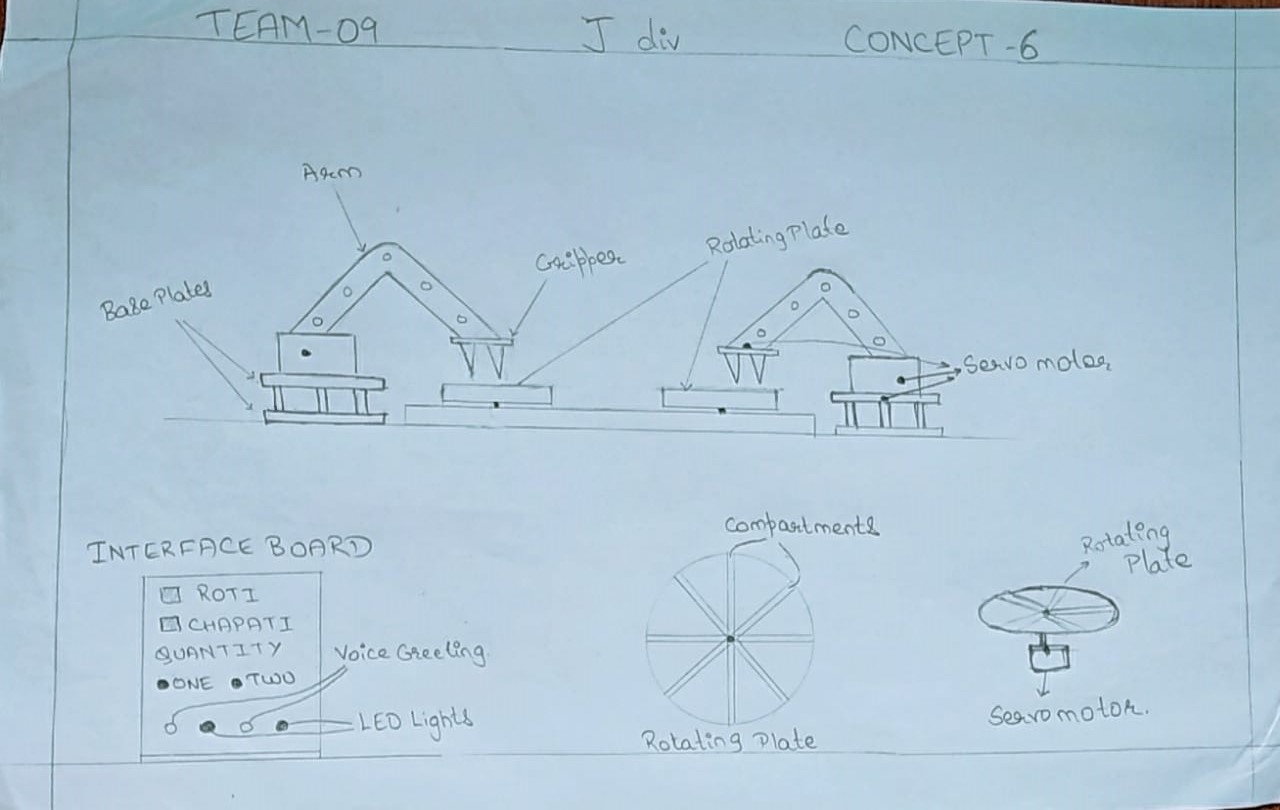 TEAM-09
J div
CONCEPT-6
Arm
Gripper
Rotating Plate
Base Plates
Servo motor
INTERFACE BOARD
ROTI
CHAPATI
QUANTITY
ONE TWO
Voice Greeting
LED Lights
Compartments
Rotating Plate
Rotating
Plate
Servomotor.